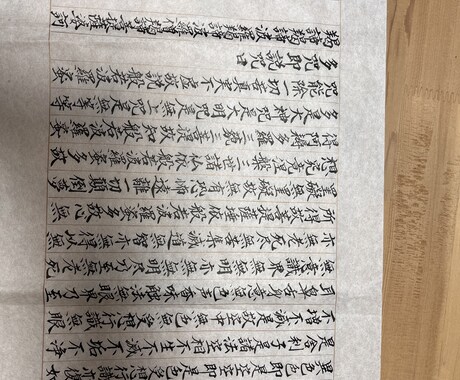 異色色即是空空即是色受想行識亦復如
是舍利子是諸法空相不生不滅不垢不淨
不增不減是故空中無色無受想行識無眼
耳鼻舌身意無色声香味触法無眼界乃至
無意識界無無明亦無無明尽乃至無老死
亦無老死尽無苦集滅道無智亦無得以無
所得故菩提薩埵依般若波羅蜜多故心無
罣礙無罣礙故無有恐怖遠離一切顛倒夢
想究竟涅槃三世諸仏依般若波羅蜜多故
得阿耨多羅三藐三菩提故知般若波羅蜜
多是大神咒是大明咒是無上咒是無等等
咒能除一切苦真実不虚故説般若波羅蜜
多咒即説咒曰
羯諦羯諦波羅羯諦波羅僧羯諦菩提薩婆訶